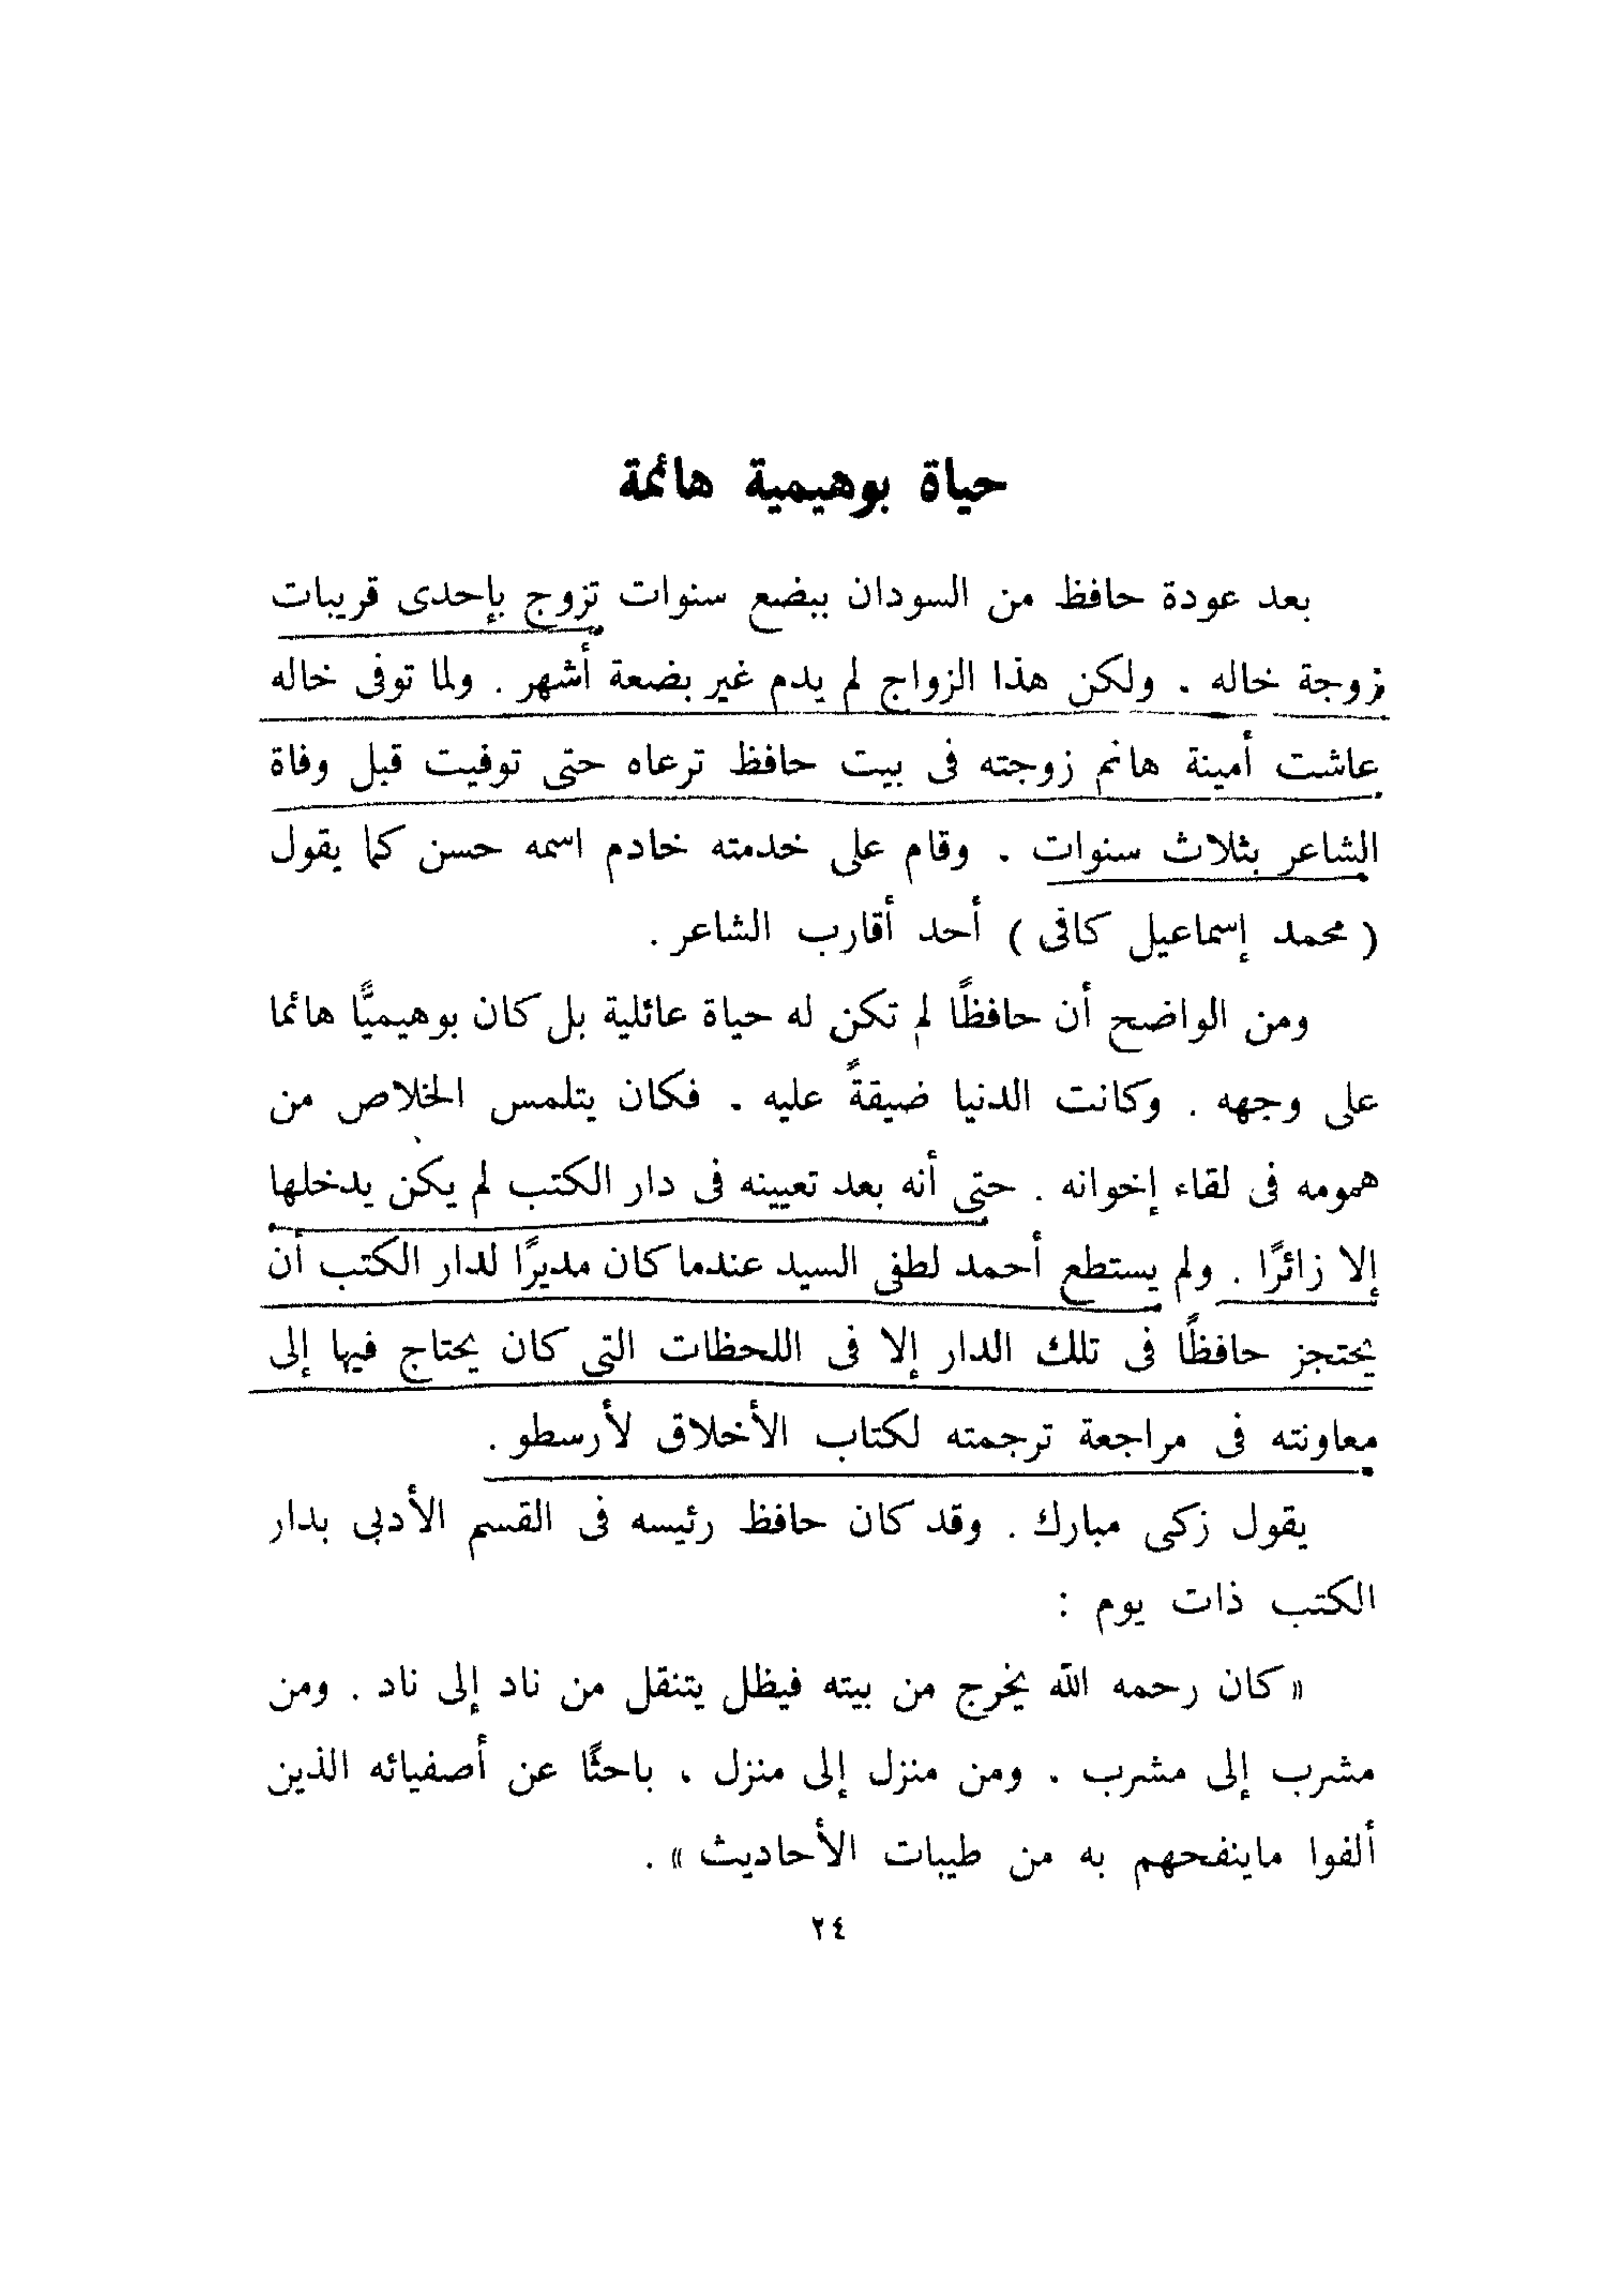 حياة بوهيمية هائمة
بعد عودة حافظ من السودان ببضع سنوات تزوج بإحدى قريبات
زوجة خاله . ولكن هذا الزواج لم يدم غير بضعة أشهر . ولما توفى خاله
عاشت أمينة هانم زوجته فى بيت حافظ ترعاه حتى توفيت قبل وفاة
الشاعر بثلاث سنوات . وقام على خدمته خادم اسمه حسن كما يقول
( محمد إسماعيل كافى ) أحد أقارب الشاعر .
ومن الواضح أن حافظًا لم تكن له حياة عائلية بل كان بوهيميًّا هائما
على وجهه . وكانت الدنيا ضيقةً عليه . فكان يتلمس الخلاص من
همومه فى لقاء إخوانه . حتى أنه بعد تعيينه فى دار الكتب لم يكن يدخلها
إلا زائرًا . ولم يستطع أحمد لطفى السيد عندما كان مديرًا لدار الكتب أن
يحتجز حافظًا فى تلك الدار إلا فى اللحظات التى كان يحتاج فيها إلى
معاونته فى مراجعة ترجمته لكتاب الأخلاق لأرسطو .
يقول زكى مبارك . وقد كان حافظ رئيسه فى القسم الأدبى بدار
الكتب ذات يوم :
« كان رحمه الله يخرج من بيته فيظل يتنقل من ناد إلى ناد . ومن
مشرب إلى مشرب . ومن منزل إلى منزل . باحثًا عن أصفيائه الذين
ألفوا ماينفحهم به من طيبات الأحاديث » .
٢٤